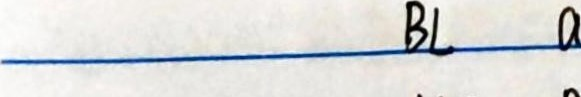 BL a